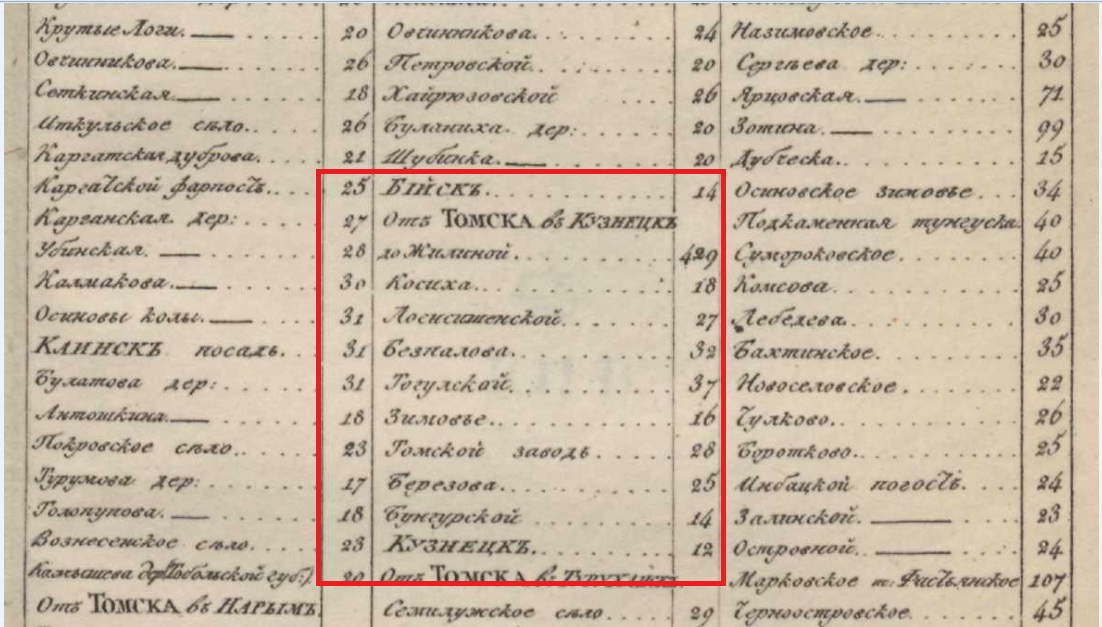 Крутые Логи. 20
Овчинникова. 26
Сеткинская. 18
Иткульское село. 26
Каргатская дуброва. 21
Каргатской фарпостъ. 25
Карганская дер: 27
Убинская. 28
Калмакова. 30
Осиновы колы. 31
КАИНСКЪ посадъ. 31
Булатова дер: 31
Антошкина. 18
Покровское село. 23
Турумова дер: 17
Голопупова. 18
Вознесенское село. 23
Камышева дер (Тобольской губ:) 20
Отъ ТОМСКА въ НАРЫМЪ.
Овчинникова. 24
Петровской. 20
Хайрюзовской 26
Буланиха дер: 20
Шубинка. 20
БІЙСКЪ. 14
Отъ ТОМСКА въ КУЗНЕЦКЪ
до Жилиной 429
Косиха. 18
Лосисишенской. 27
Безпалова. 32
Тогулской. 37
Зимовье. 16
Томской заводъ. 28
Березова. 25
Бунгурской 14
КУЗНЕЦКЪ. 12
Отъ ТОМСКА въ ТУРУХАНСКЪ.
Семилужское село. 29
Назимовское. 25
Сергѣева дер: 30
Ярцовская. 71
Зотина. 99
Дубческа. 15
Осиновское зимовье. 34
Подкаменная тунгуска. 40
Сумороковское. 40
Комсова. 25
Лебедева. 30
Бахтинское. 35
Новоселовское. 22
Чулково. 26
Боротково. 25
Инбацкой погостъ. 24
Залинской. 23
Островной. 24
Марковское 107
Черноостровское. 45